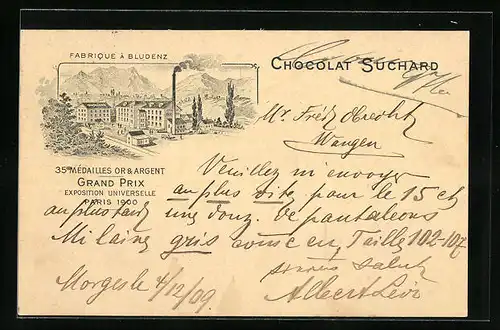 FABRIQUE À BLUDENZ
CHOCOLAT SUCHARD
35 MÉDAILLES OR & ARGENT
GRAND PRIX
EXPOSITION UNIVERSELLE
PARIS 1900
Mr. Fritz Obrecht
Wangen
Veuillez m'envoyer
au plus vite, pour le 15 ct
au plus tard une douz. de pantalons
Mi laine gris Taille 102-107
Salut
Morges le 4/12/09.
Albert